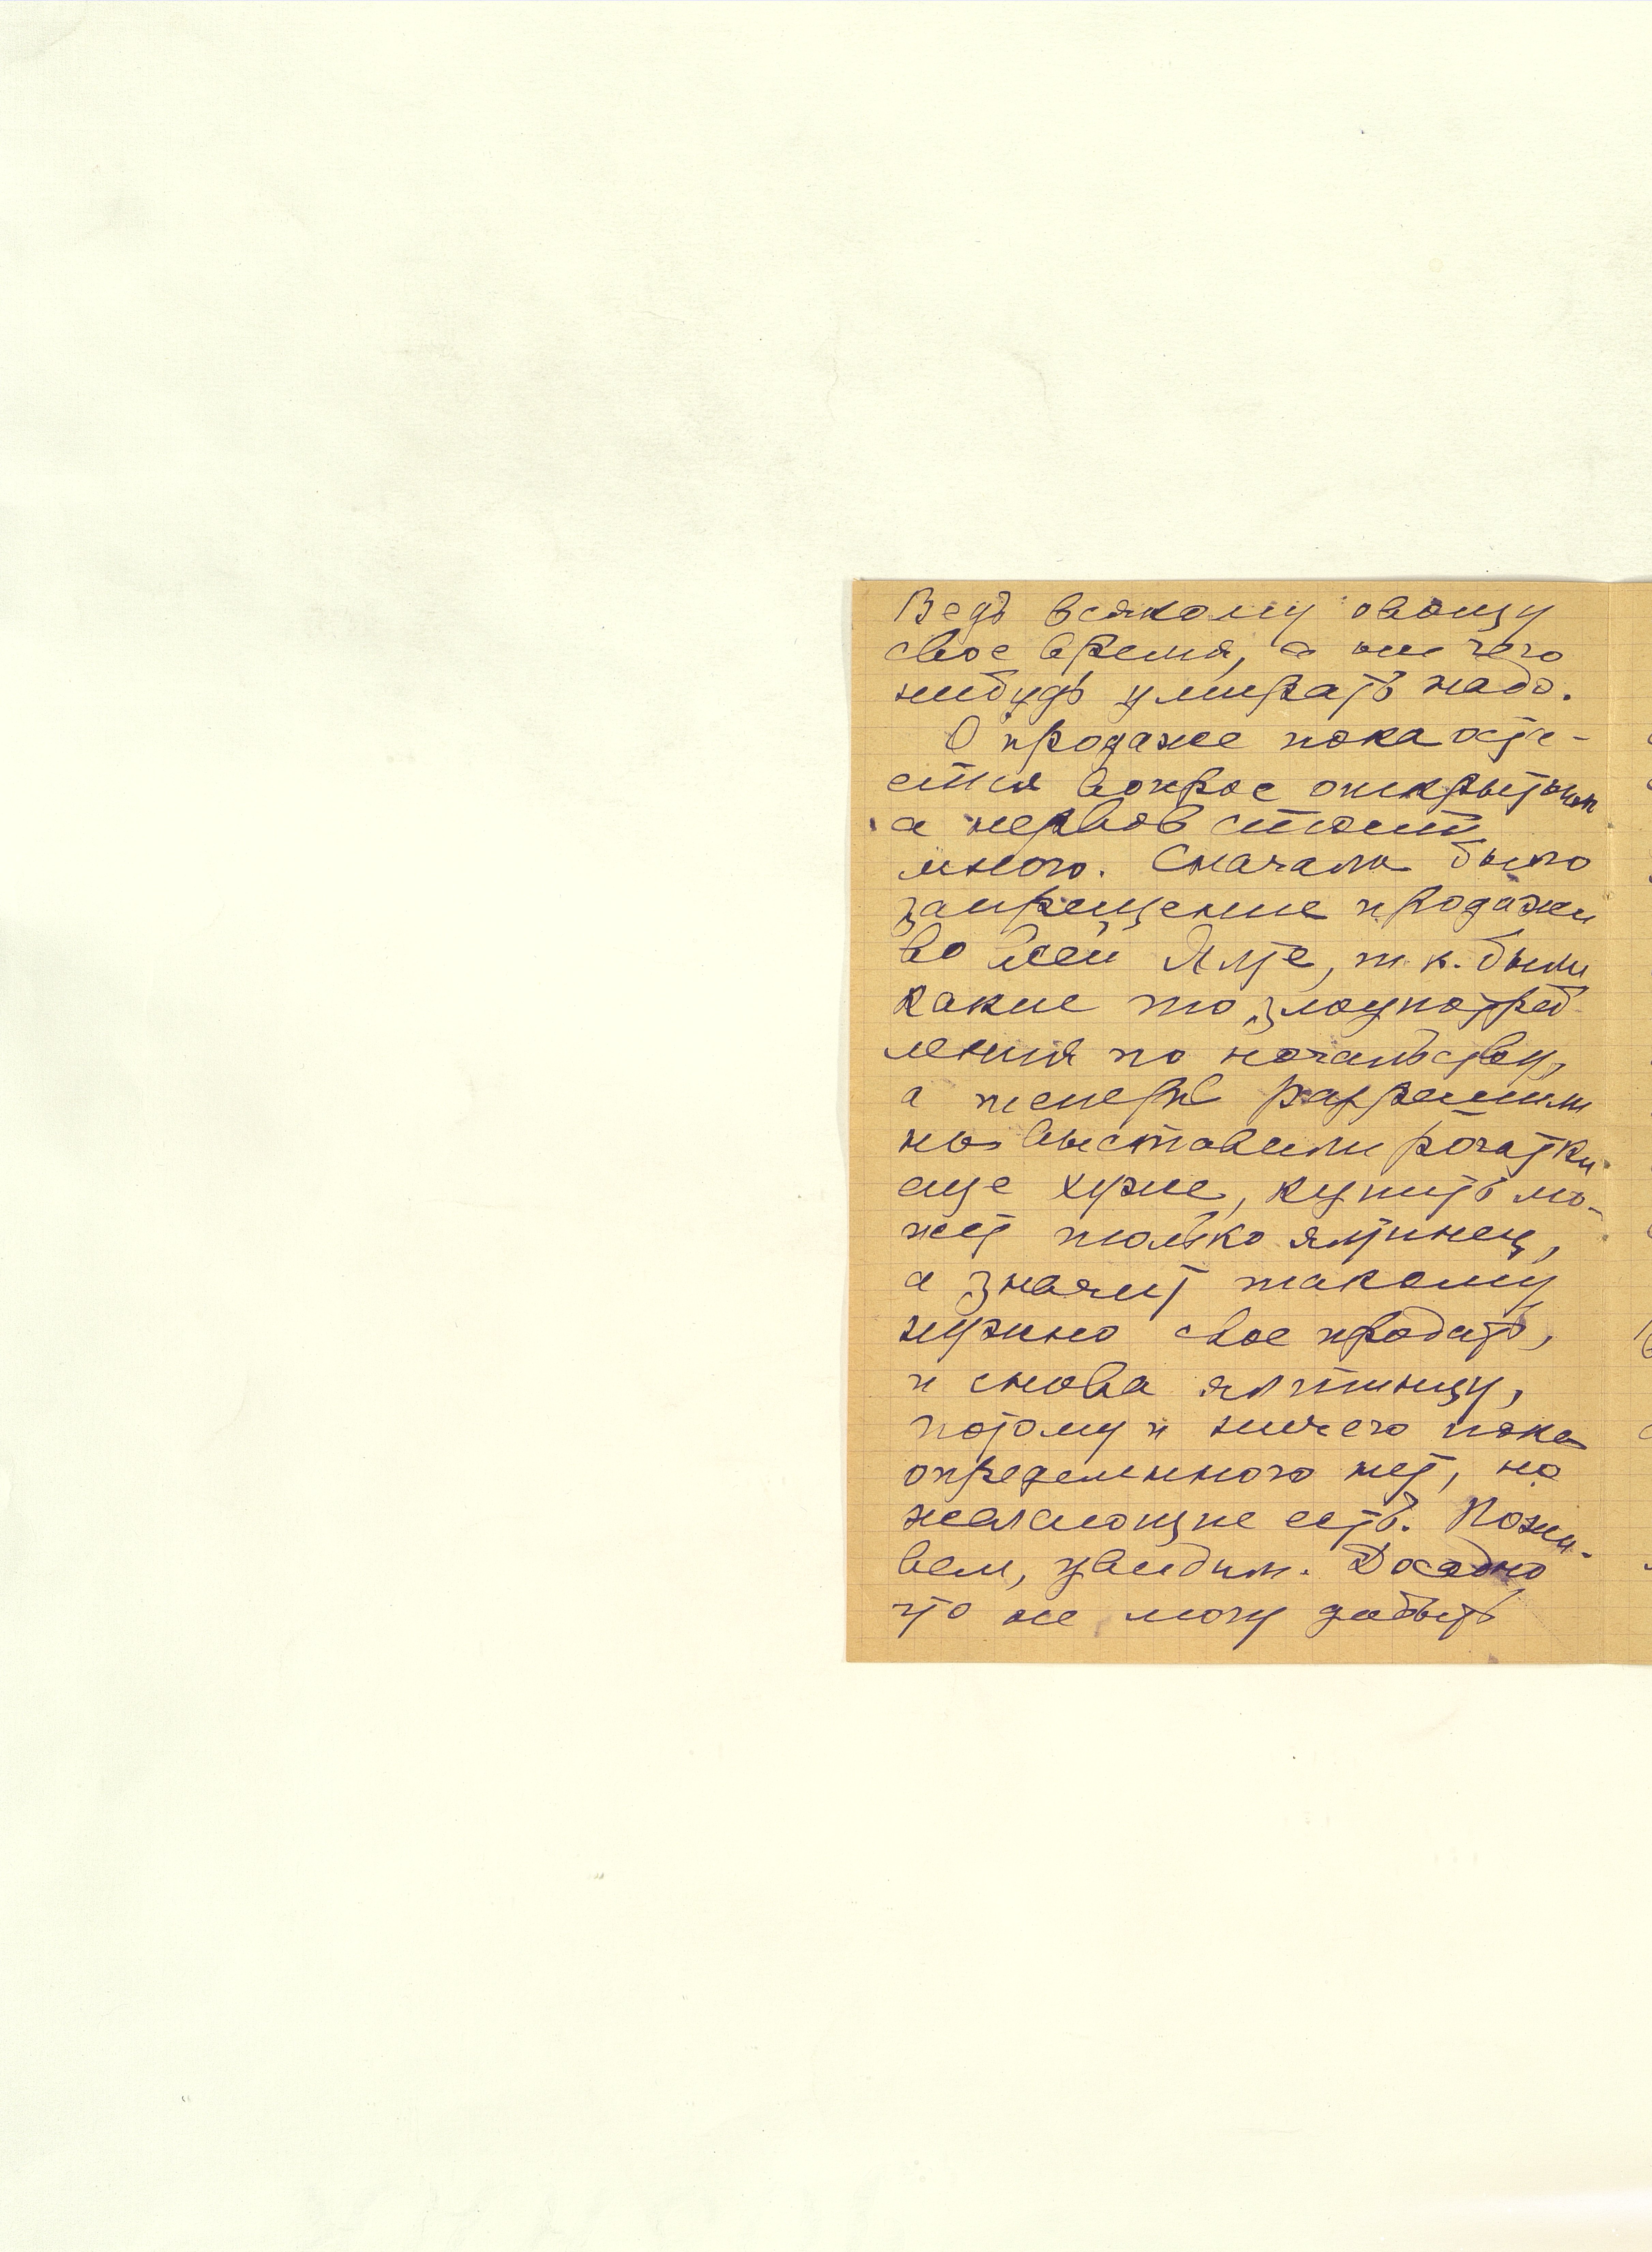 Ведь всякому овощу
свое время, а ни чего
нибудь умирать надо.
О продаже пока оста-
ется вопрос открытым
а нервов стоит
много. Сначала было
запрещение продажи
во всей Ялте, т.к. были
какие то злоупотреб
ления по начальству,
а теперь разрешили
но выставили рогатки
еще хуже, купить мо-
жет только ялтинец,
а значит такому
нужно свое продать,
и снова ялтинцу,
потому и ничего пока
определенного нет, но
желающие есть. Пожи-
вем, увидим. Досадно
что не могу добыть